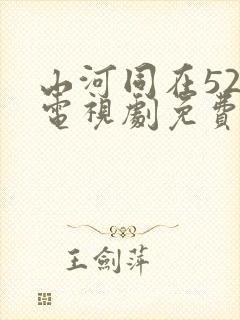 山河同在52
電視劇免費
王劍萍